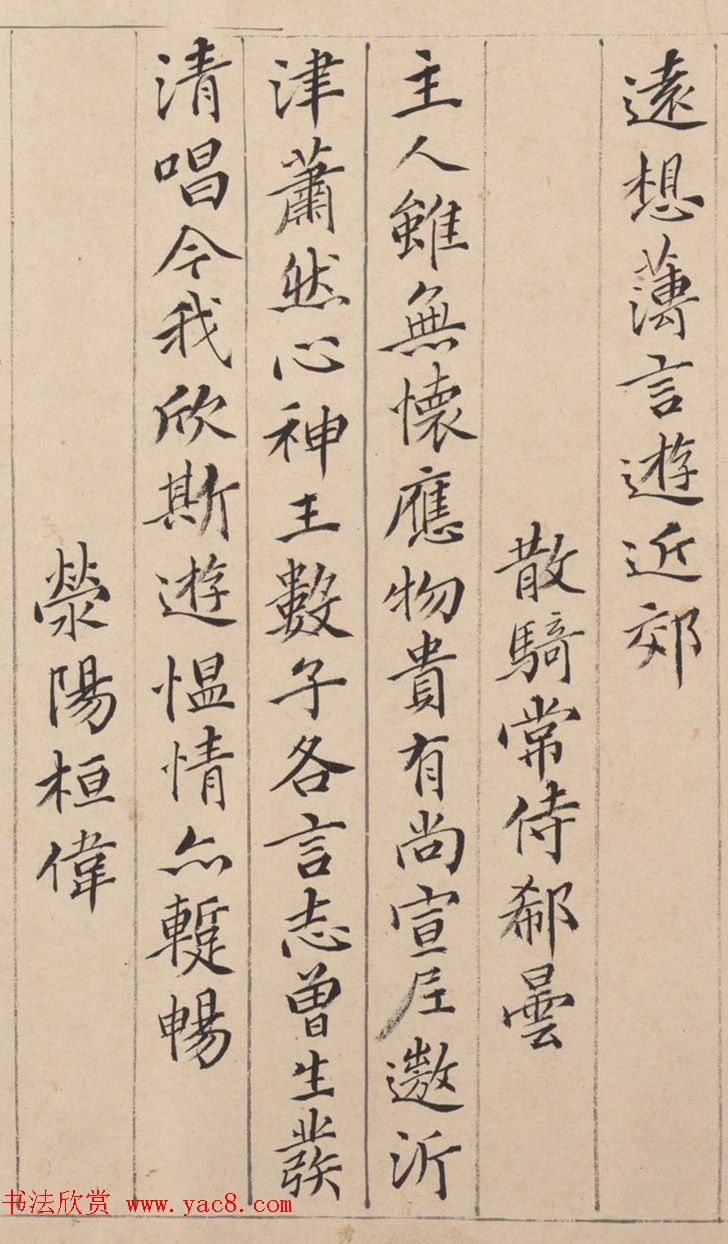 遠想薄言遊近郊
散騎常侍郗曇
主人雖無懷應物貴有尚宣尼遨沂
津蕭然心神王數子各言志曾生發
清唱今我欣斯遊慍情亦暫暢
滎陽桓偉
书法欣赏 www.yac8.com